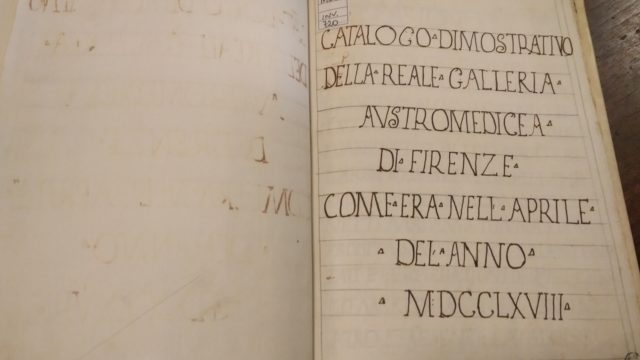 INV.
720
CATALOGO DIMOSTRATIVO
DELLA REALE GALLERIA
AVSTROMEDICEA
DI FIRENZE
COME ERA NELL APRILE
DEL ANNO
MDCCLXVIII